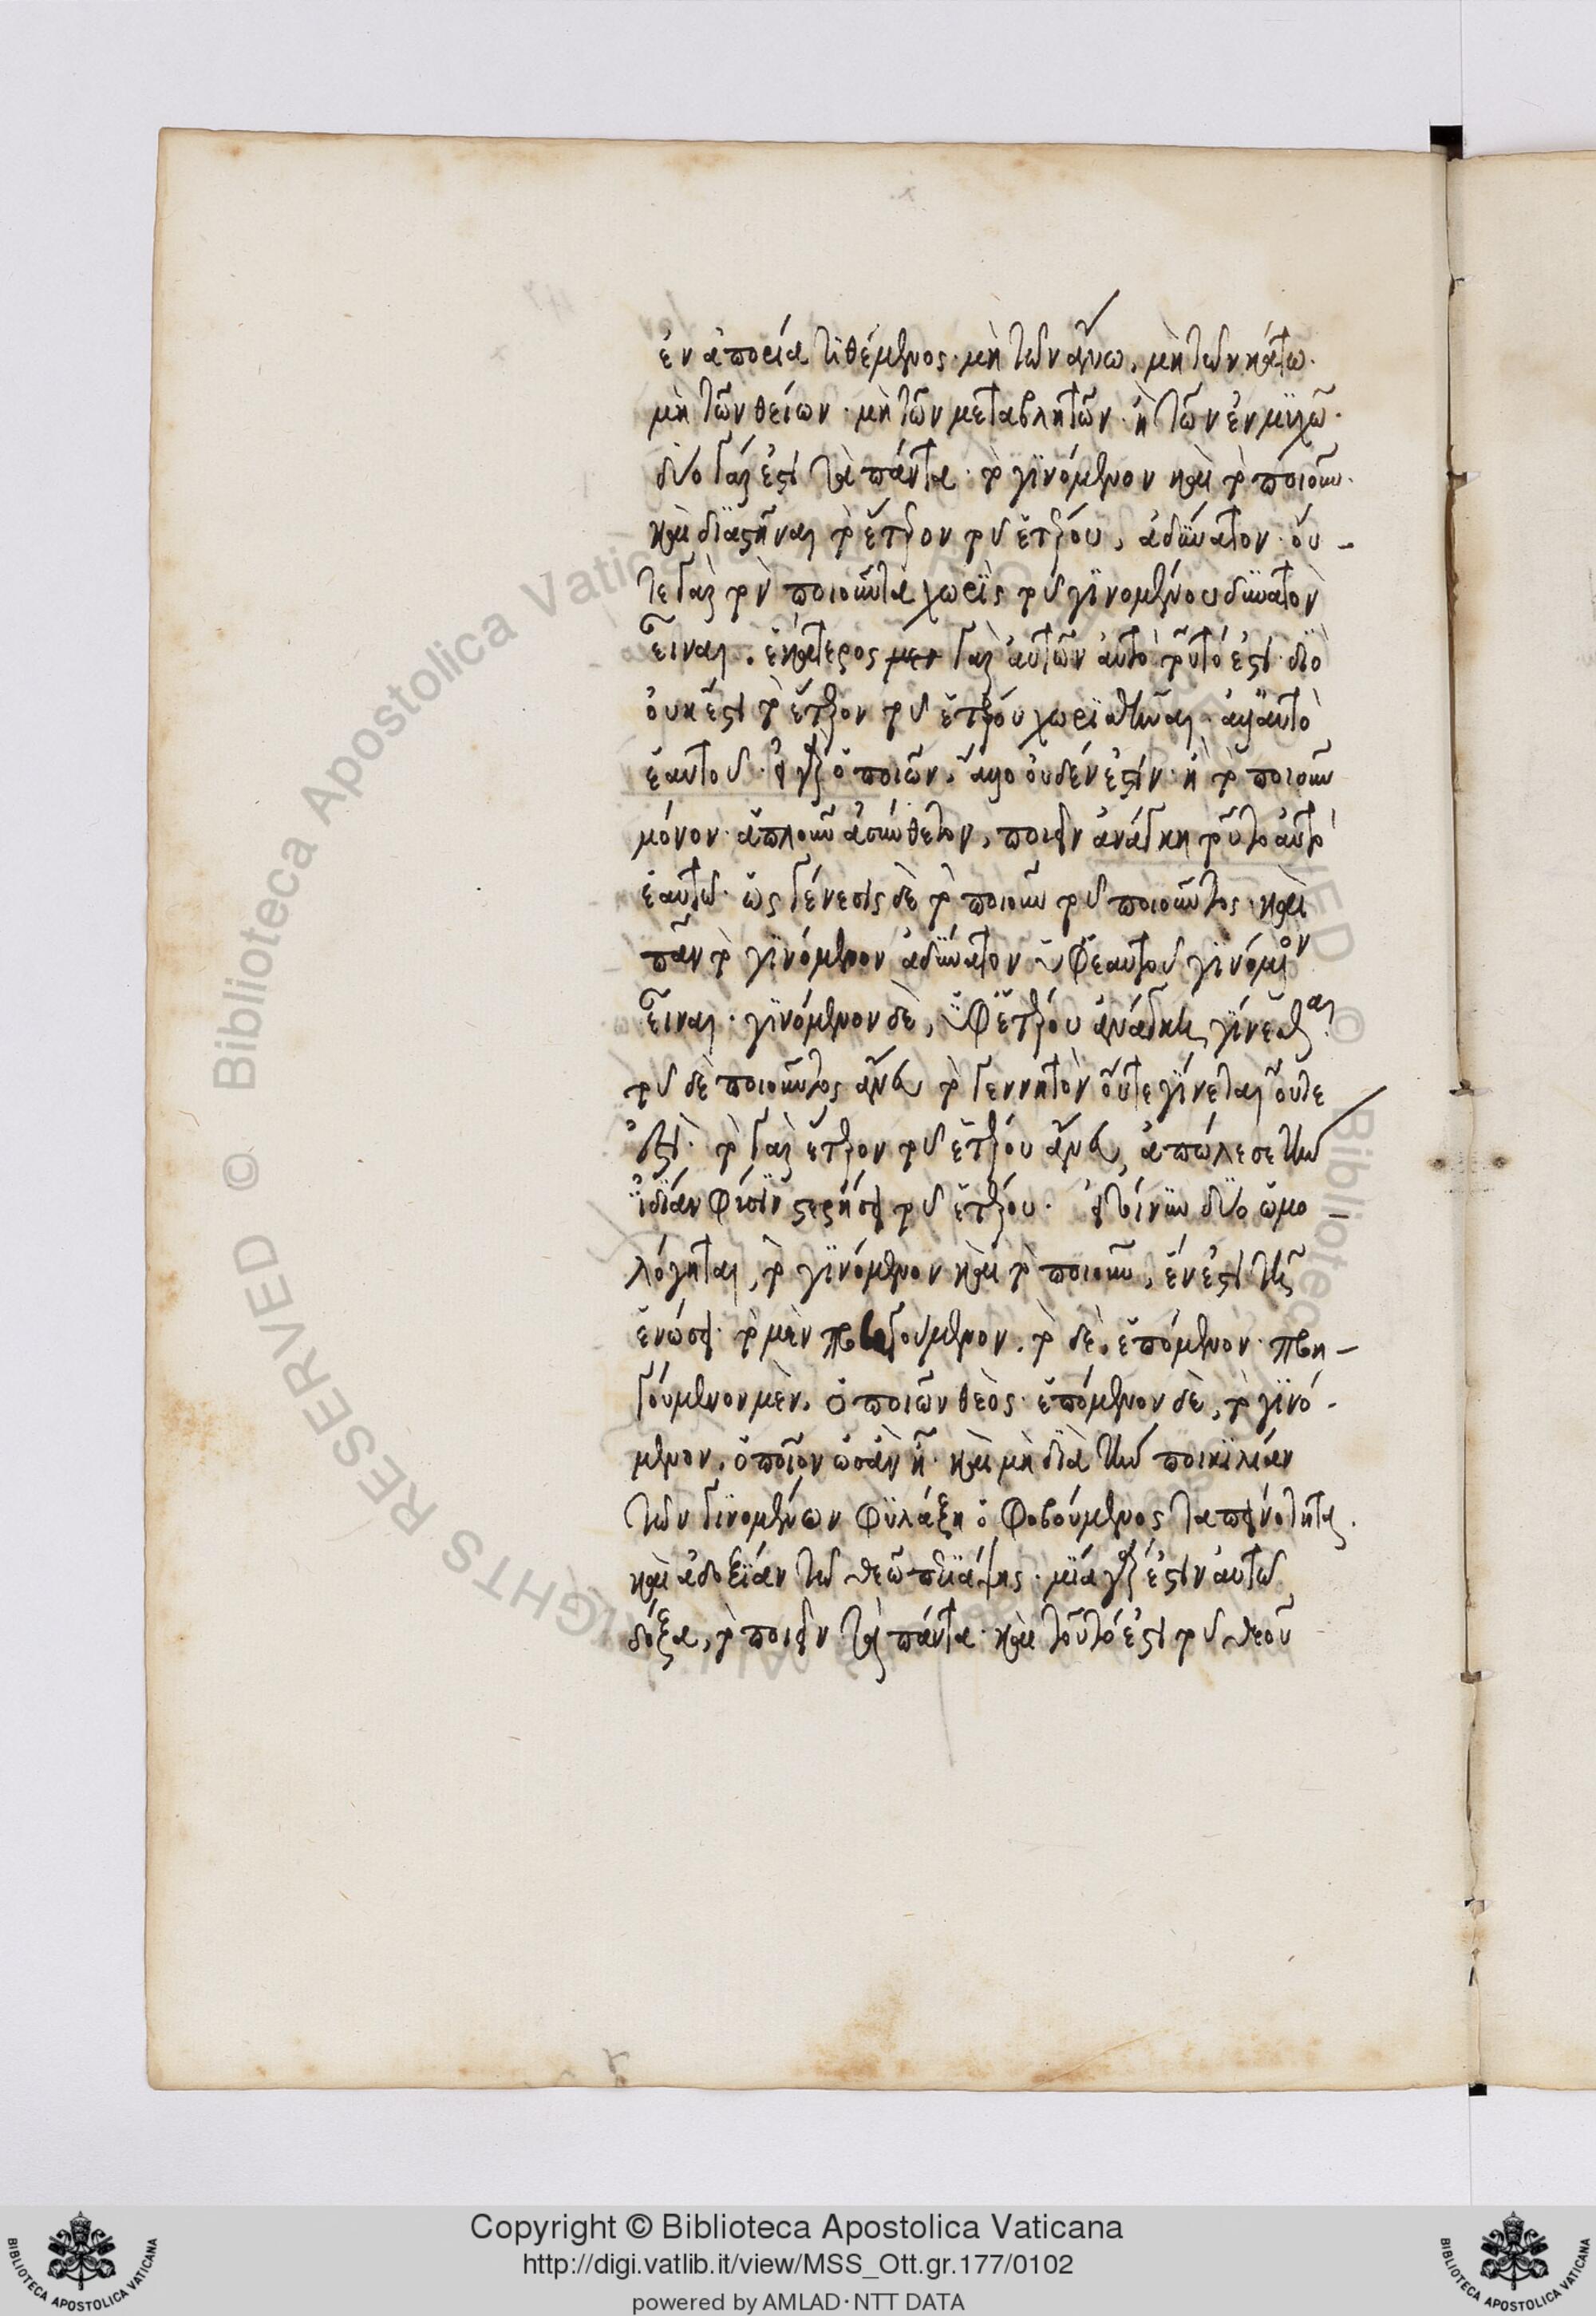 ἐν ἀπορία τιθέμενος· μὴ τῶν ἄνω, μὴ τῶν κάτω·
μὴ τῶν θείων· μὴ τῶν μεταβλητῶν· ἢ τῶν ἐν μυχῶ·
δύο γάρ ἐστι τὰ πάντα· τὸ γϊνόμενον καὶ τὸ ποιοῦν·
καὶ διαστῆναι τὸ ἕτερον τοῦ ἑτέρου, ἀδύνατον· οὔ-
τε γὰρ τὸν ποιοῦντα χωρὶς τοῦ γϊνομένου δυνατὸν
εἶναι. ἑκάτερος μεν γὰρ αὐτῶν αὐτὸ τοῦτό ἐστι· διὸ
οὐκ ἔστι τὸ ἕτερον τοῦ ἑτέρου χωρϊσθῆναι· ἀλλ' αὐτὸ
ἑαυτοῦ· εἰ γὰρ ὁ ποιῶν, ἄλλο οὐδέν ἐστιν· ἢ τὸ ποιοῦν
μόνον· ἁπλοῦν ἀσύνθετον, ποιεῖν ἀνάγκη τοῦτο αὐτὸ
ἑαυτῶ· ὡς γένεσίς δὲ τὸ ποιοῦν τοῦ ποιοῦντος· καὶ
πᾶν τὸ γϊνόμενον ἀδύνατον ὑφ' ἑαυτοῦ γϊνόμενον
εἶναι· γϊνόμενον δὲ, ὑφ' ἑτέρου ἀνάγκη γίνεσθαι
τοῦ δὲ ποιοῦντος ἄνευ τὸ γεννητὸν οὔτε γίνεται οὔτε
ἐστί· τὸ γὰρ ἕτερον τοῦ ἑτέρου ἄνευ, ἀπώλεσε τὴν
ἰδίαν φύσιν στερήσει τοῦ ἑτέρου· εἰ τοίνυν δύο ὡμο-
λόγηται, τὸ γϊνόμενον καὶ τὸ ποιοῦν, ἕν ἐστι τῇ
ἑνώσει· τὸ μὲν προηγούμενον, τὸ δὲ, ἑπόμενον· προη-
γούμενον μὲν, ὁ ποιῶν θεὸς· ἑπόμενον δὲ, τὸ γϊνό-
μενον, ὁποῖον ὡσὰν ἦ· καὶ μὴ διὰ τὴν ποικιλίαν
τῶν γϊνομένων φυλάξη ὁ φοβούμενος ταπεινότητα,
καὶ ἀδοξίαν τῶ θεῶ περιάψης· μία γάρ ἐστιν αὐτῶ
δόξα, τὸ ποιεῖν τὰ πάντα· καὶ τοῦτό ἐστι τοῦ θεοῦ
Copyright © Biblioteca Apostolica Vaticana
http://digi.vatlib.it/view/MSS_Ott.gr.177/0102
powered by AMLAD·NTT DATA